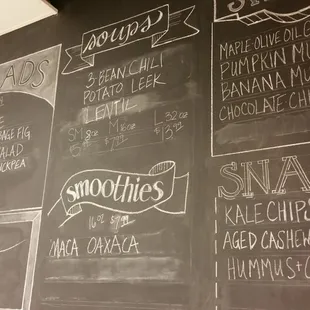 ADS
FIG
ALAD
CKPEA
soups
3 BEAN CHILI
POTATO LEEK
LENTIL
SM 8oz M 16oz L 32oz
smoothies
16oz
MACA OAXACA
MAPLE OLIVE OIL G
PUMPKIN M
BANANA MU
CHOCOLATE CH
SNA
KALE CHIPS
AGED CASHEW
HUMMUS + C